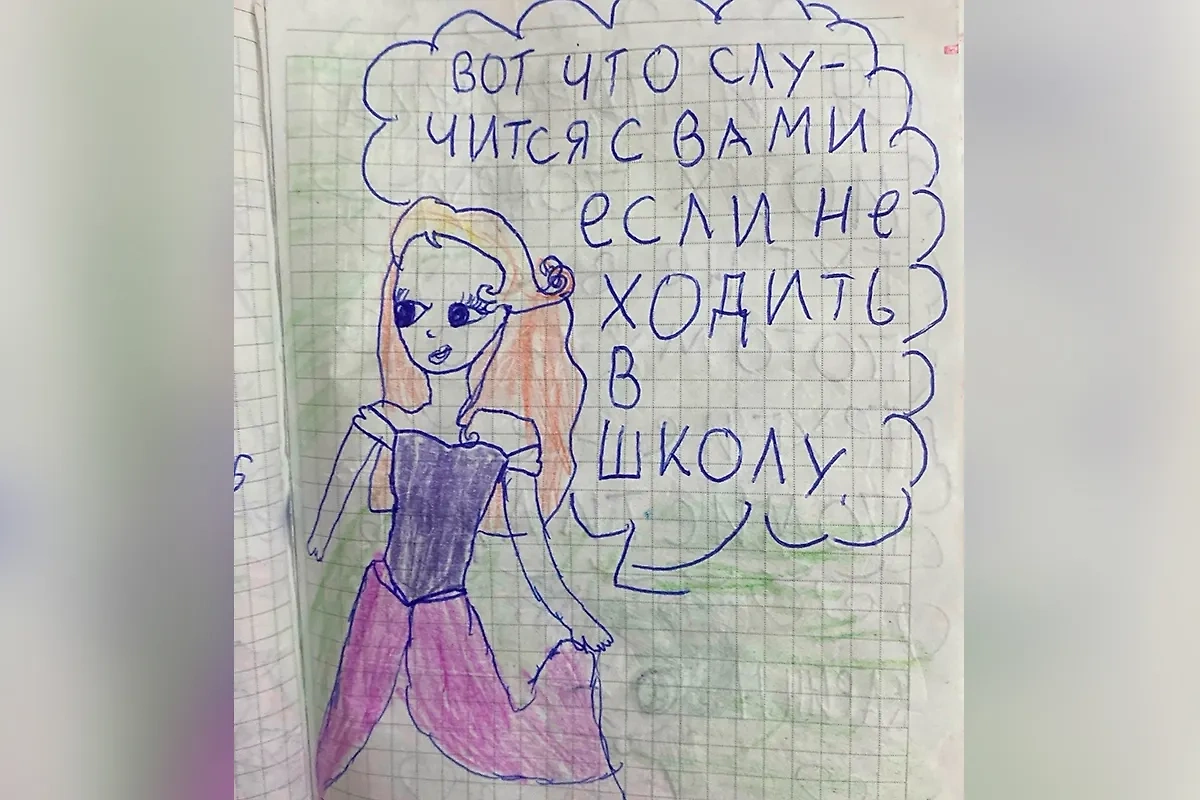 ВОТ ЧТО СЛУ-
ЧИТСЯ С ВАМИ
если не
ХОДИТЬ
В
ШКОЛУ.